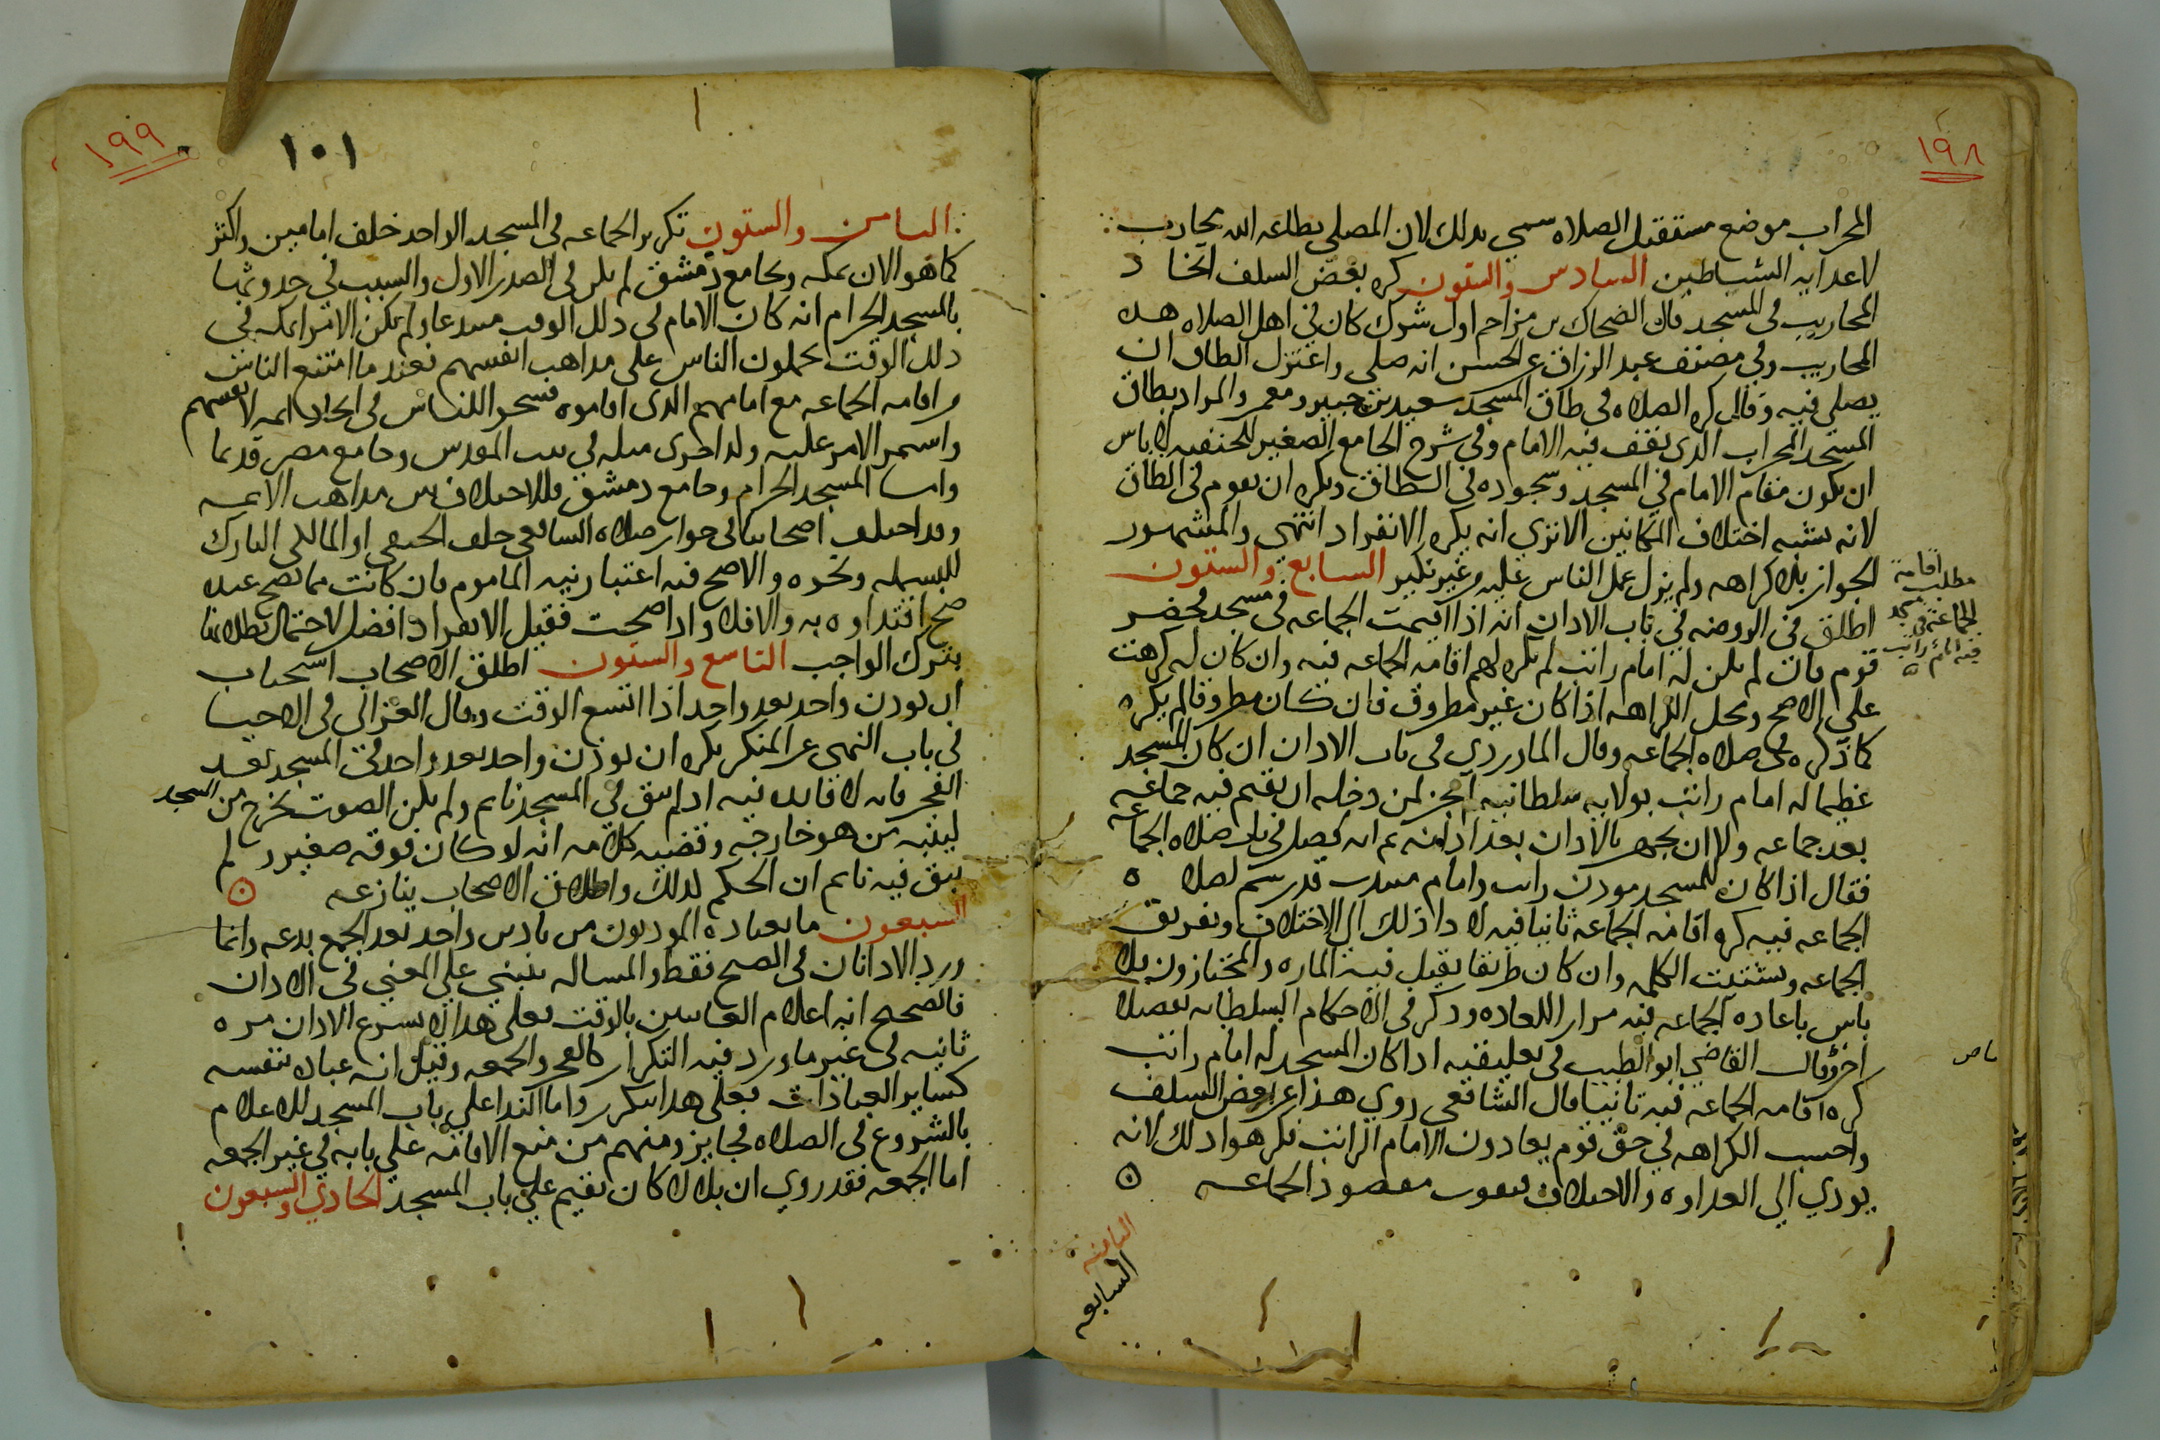 ١٩٨
المحراب موضع مستقبل الصلاه سمي بدلك لان المصلي بطلعه الله محارب
لاعدايه الشياطين السادس والستون كره بعض السلف اتخاد
المحاريب في المسجد قال الضحاك بن مزاحم اول شرك كان في اهل الصلاه هده
المحاريب وفي مصنف عبد الرزاق عن الحسن انه صلى واعتزل الطاق ان
يصلي فيه وقال كره الصلاه في طاق المسجد سعيد بن جبير ومعمر والمراد بطاق
المسجد المحراب الدي يقف فيه الامام وفي شرح الجامع الصغير للحنفيه لا باس
ان يكون مقام الامام في المسجد وسجوده في الطاق ويكره ان يقوم في الطاق
لانه يشبه اختلاف المكانين الا تري انه يكره الانفراد انتهى والمشهور
الجواز بلا كراهه ولم يزل عمل الناس عليه وغير نكير السابع والستون
مطلب اقامة
الجماعة في مسجد
فيه امام راتب
اطلق في الروضه في باب الادان انه اذا اقيمت الجماعه في مسجد فحضر
قوم فان لم يكن له امام راتب لم يكره لهم اقامه الجماعه فيه وان كان له كرهت
على الاصح ومحل الكراهه اذا كان غير مطروق فان كان مطروقا لم يكره
كما ذكره في صلاه الجماعه وقال الماوردي في باب الادان ان كان المسجد
عظيما له امام راتب بولايه سلطانيه لم يجز لمن دخله ان يقيم فيه جماعه
بعد جماعه ولا ان يجهر بالادان بعد ادانه ثم انه فصل في باب صلاه الجماعه
فقال اذا كان للمسجد مودن راتب وامام مندب قد رسم لصلاه
الجماعه فيه كره اقامه الجماعه ثانيا فيه لاداذلك الى الاختلاف وتفريق
الجماعه وتشتيت الكلمه وان كان طريقا يقبل فيه الماره والمجتازون فلا
باس باعاده الجماعه فيه مرارا للعاده ودكر في الاحكام السلطانيه تفصيلا
اخر وقال القاضي ابو الطيب في تعليقته ادا كان المسجد له امام راتب
كره اقامه الجماعه فيه ثانيا قال الشافعي روي هذا عن بعض السلف
واحسب الكراهه في حق قوم يعادون الامام الراتب فكرهوا دلك لانه
يودي الى العداوه والاختلاف فيفوت مقصود الجماعه
الثامنه
السابعه
١٩٩
١٠١
الثامن والستون تكرير الجماعه في المسجد الواحد خلف امامين واكثر
كما هو الان بمكه وجامع دمشق لم يكن في الصدر الاول والسبب في حدوثها
بالمسجد الحرام انه كان الامام في دلك الوقت مبتدعا ولم يكن الامرا بمكه في
دلك الوقت يحملون الناس على مداهب انفسهم فعند ما امتنع الناس
من اقامه الجماعه مع امامهم الدي اقاموه فسحوا للناس في اتخاد ايمه لانفسهم
واستمر الامر عليه ولدا جرى مثله في بيت المقدس وجامع مصر قديما
واما المسجد الحرام وجامع دمشق فللاختلاف بين مداهب الايمه
وقد اختلف اصحابنا في جواز صلاه الشافعي خلف الحنفي او المالكي التارك
للبسمله ونحوه والاصح فيه اعتبار نيه الماموم فان كانت مما تصح عنده
صح اقتداوه به والا فلا وادا صحت فقيل الانفراد افضل لاحتمال بطلانها
بترك الواجب التاسع والستون اطلق الاصحاب استحباب
ان يودن واحد بعد واحد اذا اتسع الوقت وقال الغزالي في الاحيا
في باب النهي عن المنكر يكره ان يوذن واحد بعد واحد في المسجد بعد
الفجر فانه لا فايده فيه ادلم يبق في المسجد نايم ولم يكن الصوت يخرج من المسجد
لينبه من هو خارجه وقضيه كلامه انه لو كان فوقه صغير ولم
يبق فيه نايم ان الحكم لدلك واطلاق الاصحاب ينازعه
السبعون ما يعتاده المودنون من تادين واحد بعد الجمع بدعه وانما
ورد الادانان في الصبح فقط والمساله تنبني على المعني في الادان
فالصحيح انه اعلام الغايبين بالوقت فعلى هدا لا يشرع الادان مره
ثانيه في غير ما ورد فيه التكرار كالفجر والجمعه وقيل انه عباده بنفسه
كساير العبادات فعلى هدا يتكرر واما الندا على باب المسجد للاعلام
بالشروع في الصلاه فجايز ومنهم من منع الاقامه علي بابه في غير الجمعه
اما الجمعه فقد روي ان بلالا كان يقيم على باب المسجد الحادي والسبعون